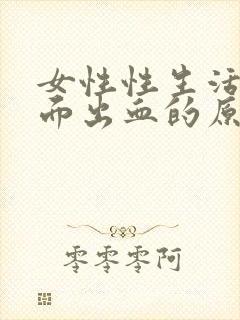 女性性生活
而出血的原
零零零阿